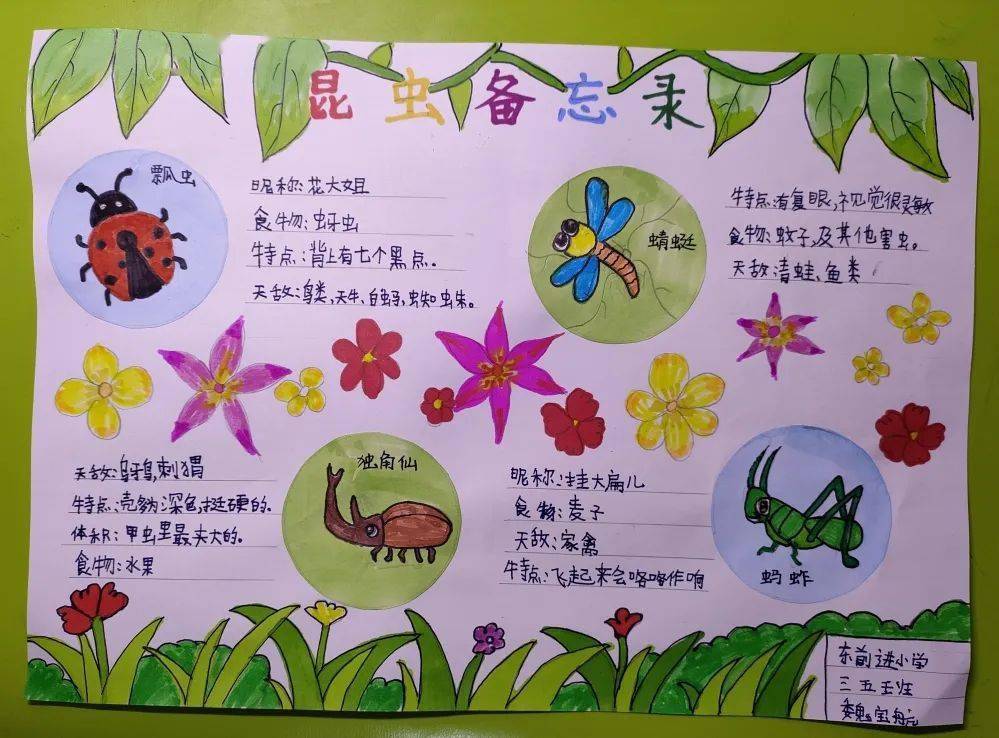 昆虫备忘录
瓢虫
昵称:花大姐
食物:蚜虫
特点:背上有七个黑点。
天敌:鸟类,天牛、白蚂、蜘蛛。
蜻蜓
特点:有复眼,视觉很灵敏
食物:蚊子,及其他害虫。
天敌:青蛙、鱼类
天敌:乌鸦,刺猬
特点:壳多为深色,挺硬的。
体积:甲虫里最大的。
食物:水果
独角仙
昵称:挂大扁儿
食物:麦子
天敌:家禽
特点:飞起来会咯咯作响
蚂蚱
东前进小学
三五王班
魏宝航